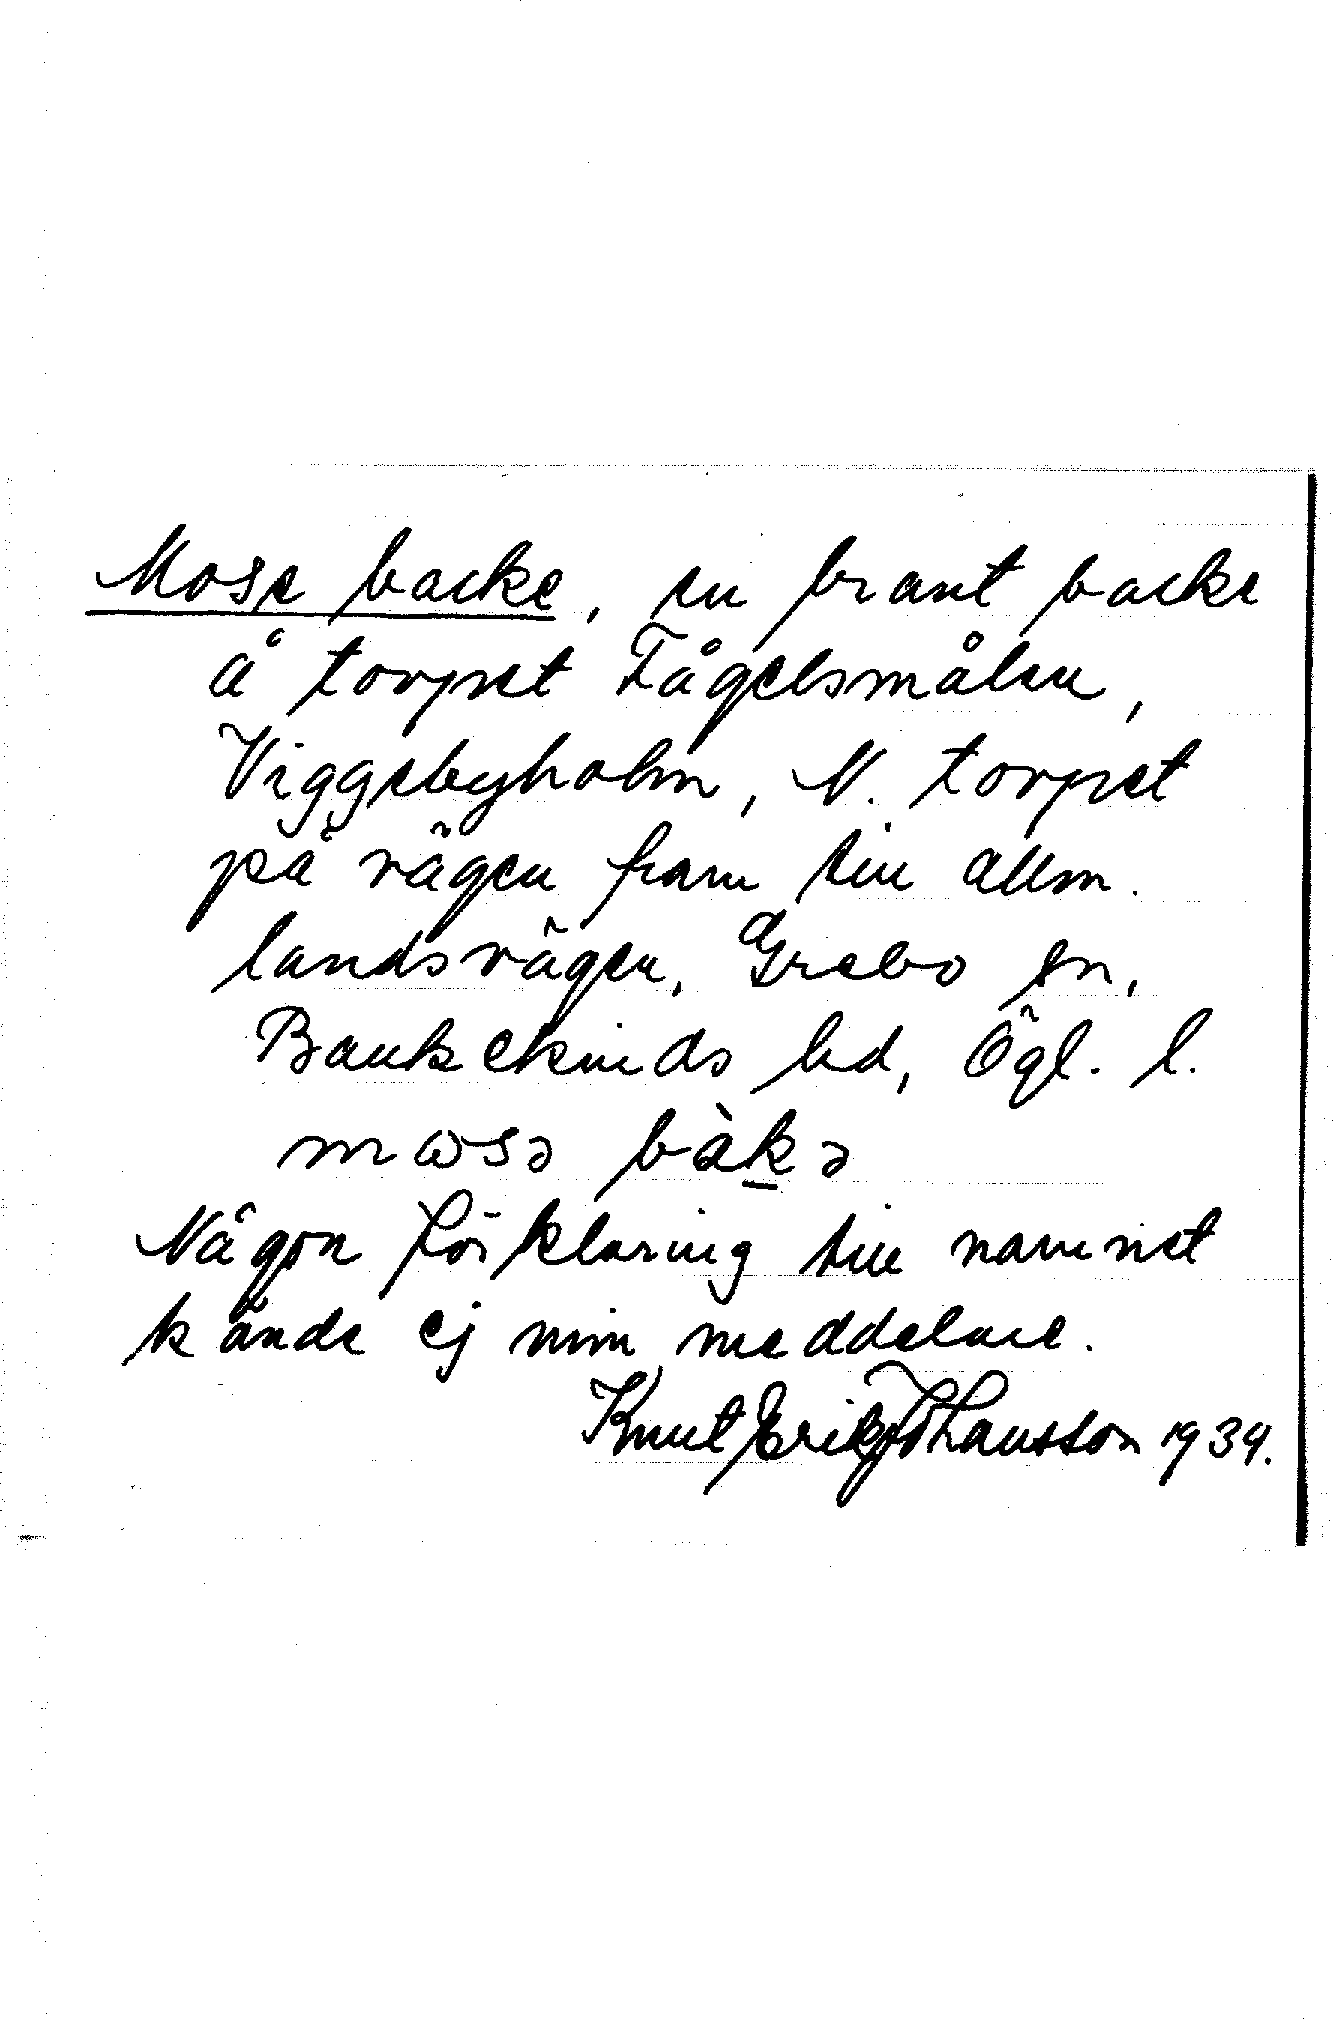 Mose backe, en brant backe
å torpet Fågelsmålen,
Viggebyholm, N. torpet
på vägen fram till allm.
landsvägen, Grebo sn,
Bankekinds hd, Ögl. l.
mɷsə bàkə
Någon förklaring till namnet
kände ej min meddelare.
Knut Erik Johansson 1934.